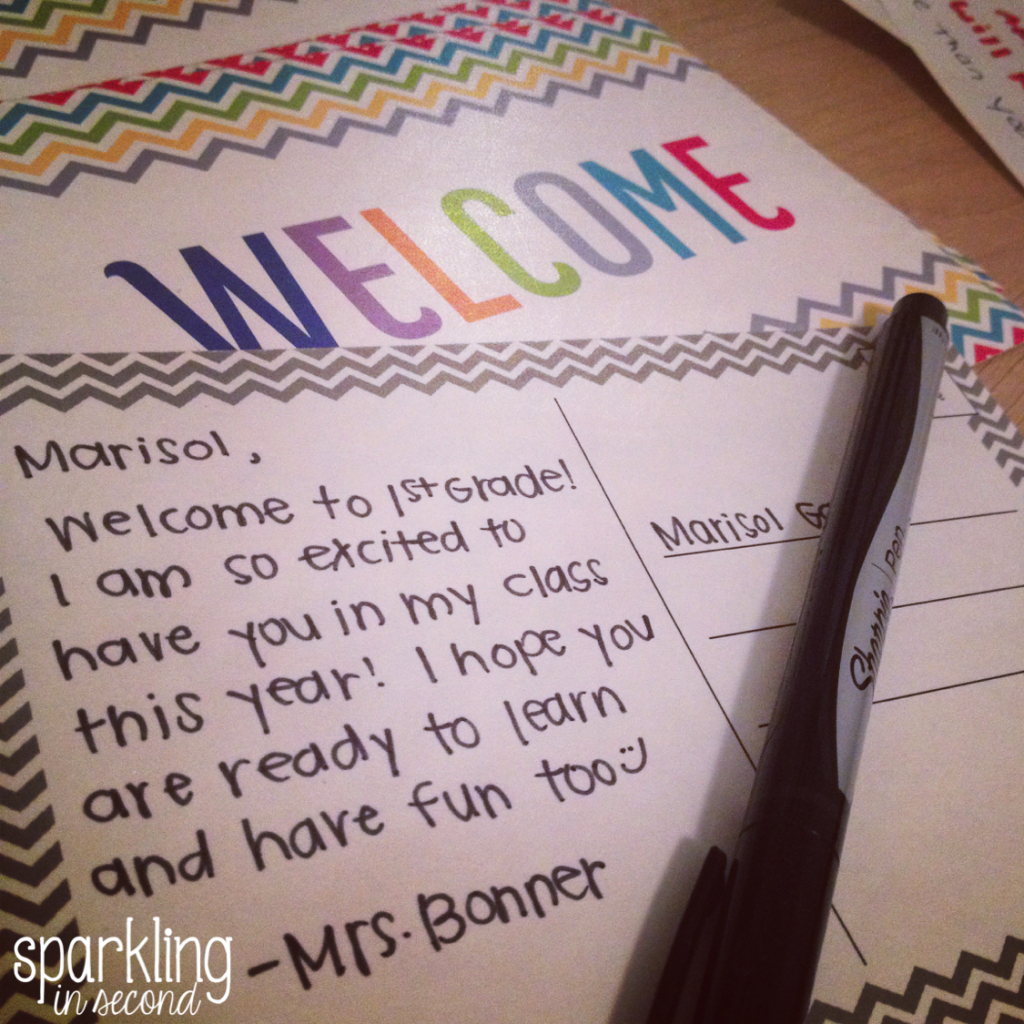 will
than
WELCOME
Marisol,
Welcome to 1st Grade!
I am so excited to
have you in my class
this year! I hope you
are ready to learn
and have fun too
-Mrs. Bonner
Marisol
Sharpie Pen
sparkling
in second